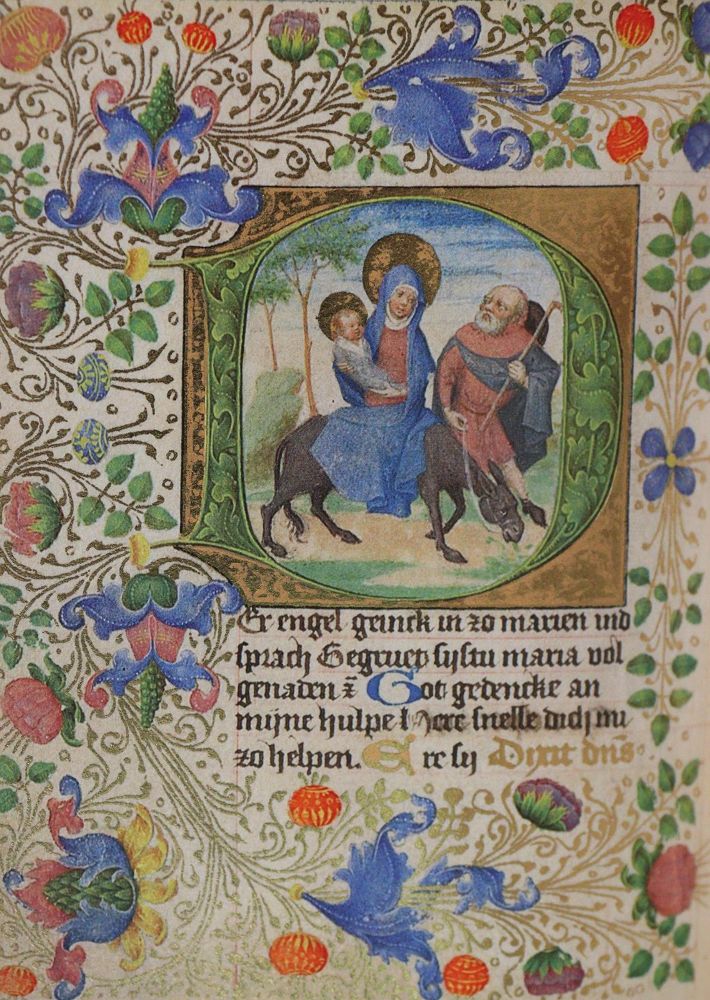 Er engel geinck in zo marien vnd
sprach Gegruet systu maria vol
genaden z̄ Got gedencke an
mijne hulpe here snelle dich mi
zo helpen. Ere sij Dixit dn̄s